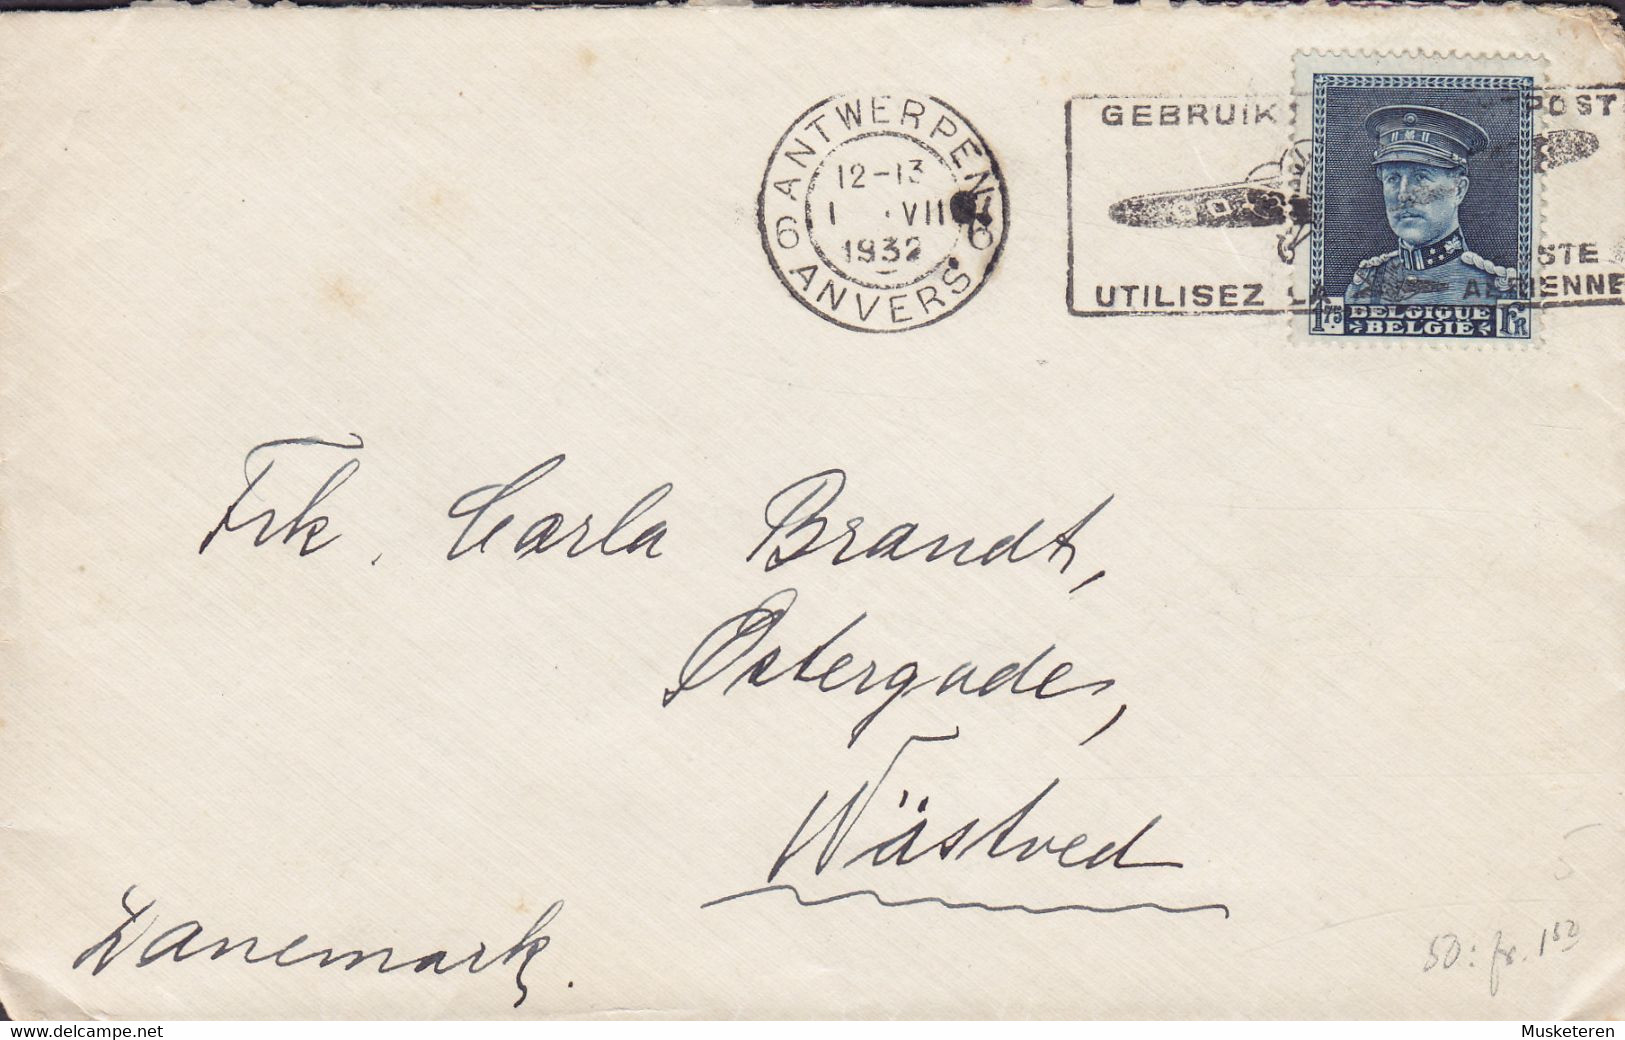 ANTWERPEN
6 6
12-13
I VII
1932
ANVERS
GEBRUIK POST
UTILISEZ LA POSTE AERIENNE
1.75 BELGIQUE BELGIË FR
Frk. Carla Brandt,
Østergade,
Nästved
Danemark.
50: fr. 1.50
www.delcampe.net
Musketeren